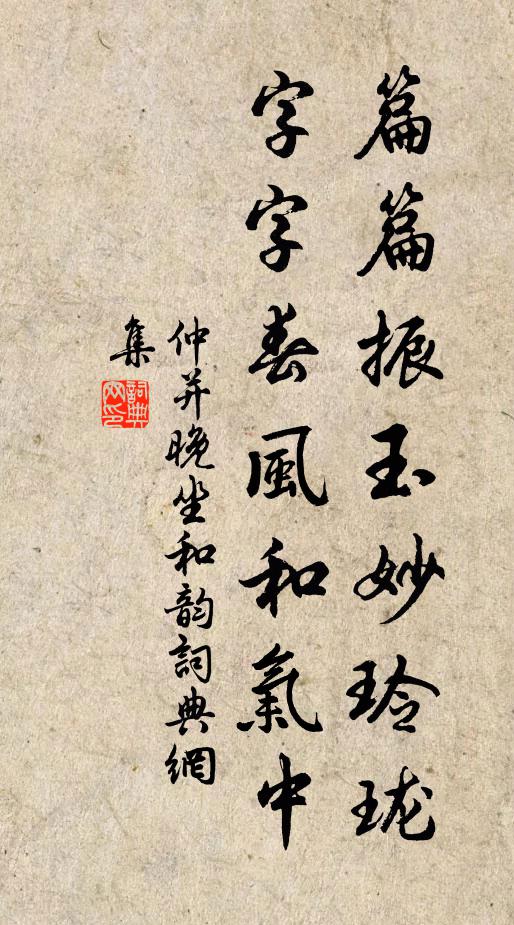 篇篇振玉妙玲珑
字字春風和氣中
仲并晚坐和韵詞典網
集
詞典網印